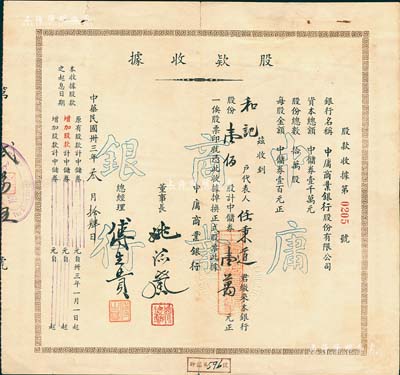 股款收據
股款收據第 0205 號
銀行名稱 中庸商業銀行股份有限公司
資本總額 中儲券壹千萬元
股份總數 拾萬股
每股金額 中儲券壹百元正
茲收到
和記 戶代表人 任秉道 君繳來本銀行
股份 壹佰 股計中儲券 壹萬 元正
一俟股票印就憑此收據掉換正式股票此據
中庸商業銀行
董事長
總經理
中華民國卅三年 叁 月 拾肆 日
本收據股款之起息日期
原有股款計中儲券 元自卅三年一月一日起
增加股款計中儲券 元自 起
增加股款計中儲券 元自 起
中庸商業銀行
596